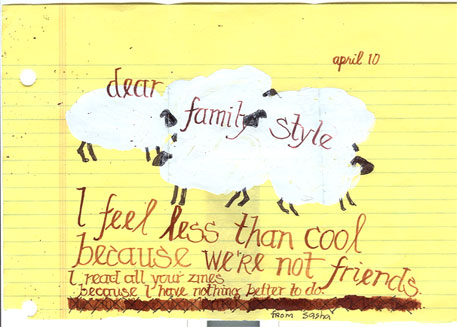 april 10
dear
family style
I feel less than cool
because we're not friends.
I read all your zines
because I have nothing better to do.
from sasha